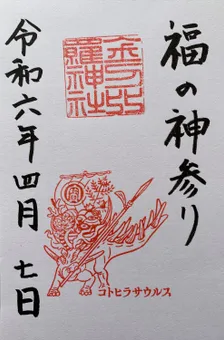 福の神参り
金刀比
羅神社
コトヒラサウルス
令和六年四月 七日